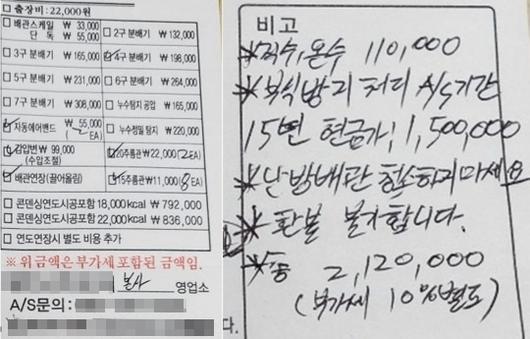 □ 출장비 : 22,000원
□ 배관스케일 ₩ 33,000
단 독 ₩ 55,000
□ 2구 분배기 ₩ 132,000
□ 3구 분배기 ₩ 165,000
4구 분배기 ₩ 198,000
□ 5구 분배기 ₩ 231,000
□ 6구 분배기 ₩ 264,000
□ 7구 분배기 ₩ 308,000
□ 누수탐지 공압 ₩ 165,000
자동에어밴드 ₩ 55,000
(2EA)
□ 누수정밀 탐지 ₩ 220,000
감압변 ₩ 99,000
(수압조절)
20주름관 ₩22,000 (2EA)
배관연장(끌어올림)
15주름관 ₩11,000 (8EA)
□ 콘덴싱연도시공포함 18,000kcal ₩ 792,000
□ 콘덴싱연도시공포함 22,000kcal ₩ 836,000
□ 연도연장시 별도 비용 추가
※ 위금액은 부가세 포함된 금액임.
본사 영업소
A/S문의 :
비고
* 직수, 온수 110,000
* 부식방지 처리 A/S기간
15년 현금가, 1,500,000
* 난방배관 청소하지마세요
* 환불 불가합니다.
* 총 2,120,000
(부가세 10% 별도)
다.